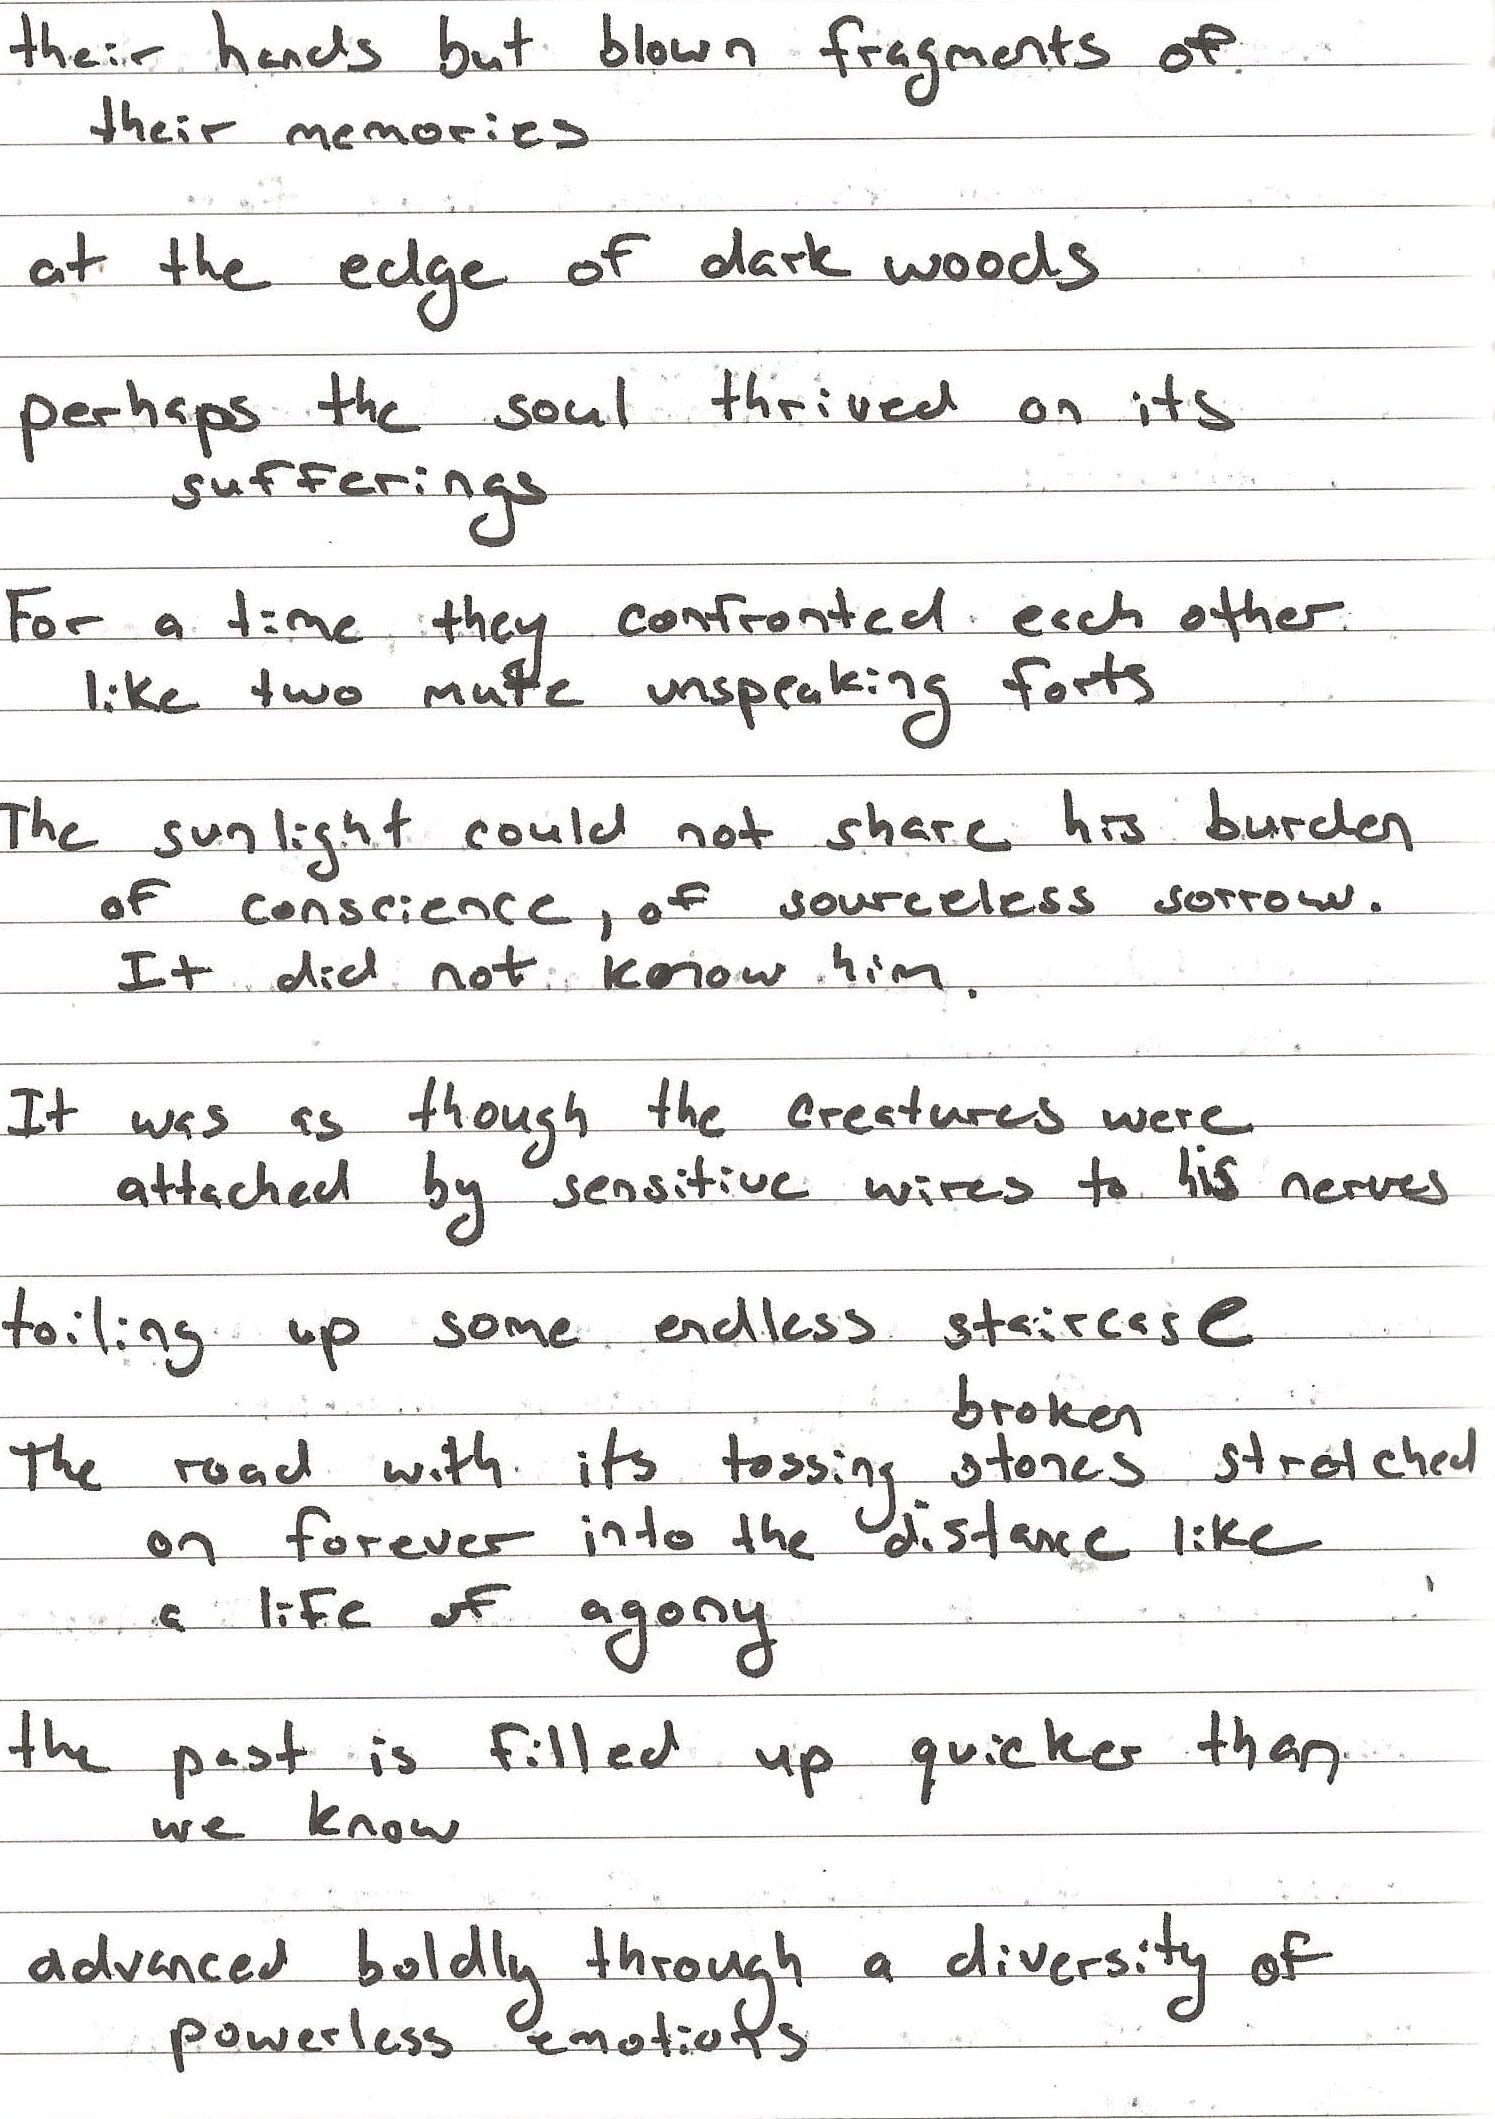 their hands but blown fragments of
their memories
at the edge of dark woods
perhaps the soul thrived on its
sufferings
For a time they confronted each other
like two mute unspeaking forts
The sunlight could not share his burden
of conscience, of sourceless sorrow.
It did not know him.
It was as though the creatures were
attached by sensitive wires to his nerves
toiling up some endless staircase
broken
The road with its tossing stones stretched
on forever into the distance like
a life of agony
the past is filled up quicker than
we know
advanced boldly through a diversity of
powerless emotions